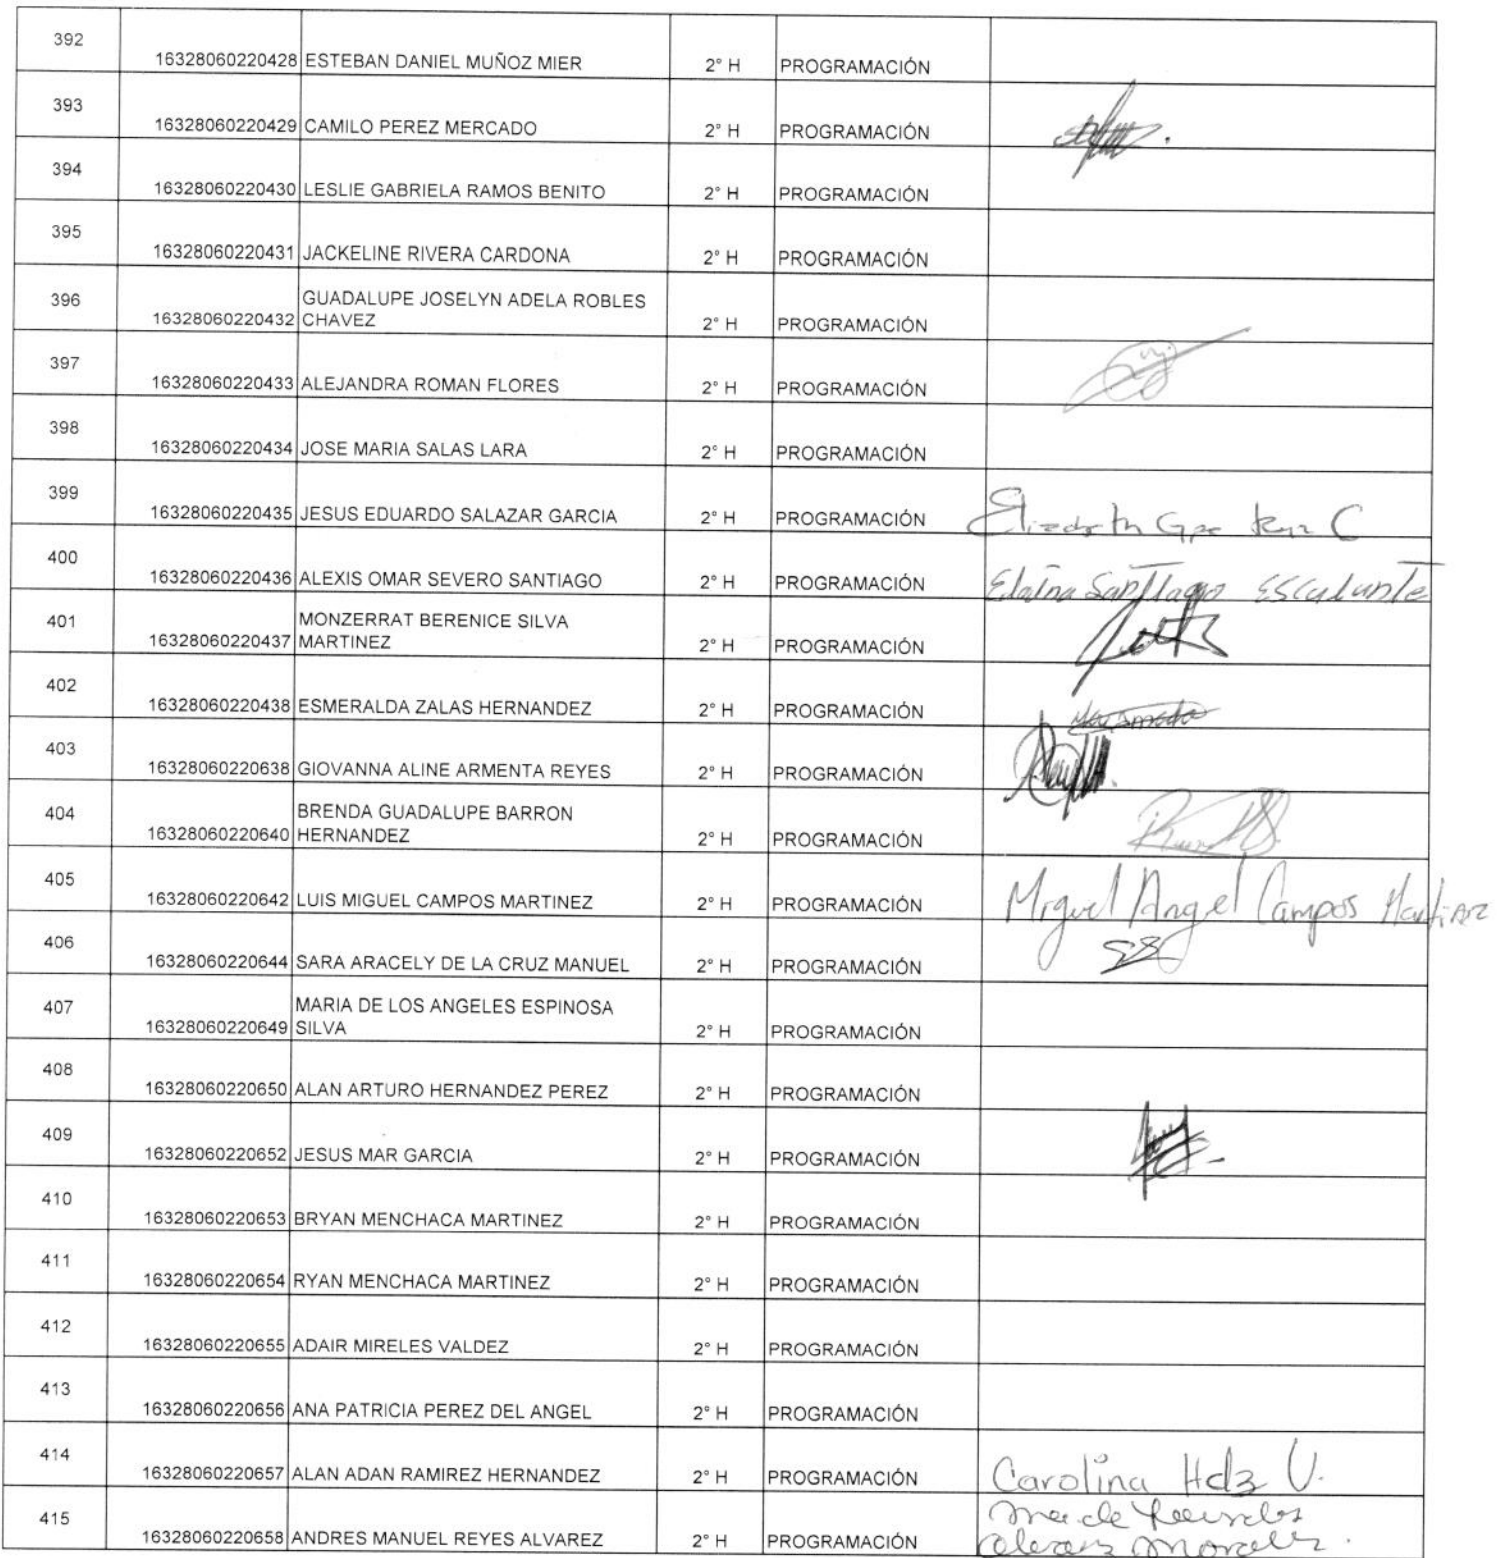 392 16328060220428 ESTEBAN DANIEL MUÑOZ MIER 2° H PROGRAMACIÓN
393 16328060220429 CAMILO PEREZ MERCADO 2° H PROGRAMACIÓN
394 16328060220430 LESLIE GABRIELA RAMOS BENITO 2° H PROGRAMACIÓN
395 16328060220431 JACKELINE RIVERA CARDONA 2° H PROGRAMACIÓN
396 GUADALUPE JOSELYN ADELA ROBLES
16328060220432 CHAVEZ 2° H PROGRAMACIÓN
397 16328060220433 ALEJANDRA ROMAN FLORES 2° H PROGRAMACIÓN
398 16328060220434 JOSE MARIA SALAS LARA 2° H PROGRAMACIÓN
399 16328060220435 JESUS EDUARDO SALAZAR GARCIA 2° H PROGRAMACIÓN Elizabeth Gpe C
400 16328060220436 ALEXIS OMAR SEVERO SANTIAGO 2° H PROGRAMACIÓN Santiago Escalante
401 MONZERRAT BERENICE SILVA
16328060220437 MARTINEZ 2° H PROGRAMACIÓN
402 16328060220438 ESMERALDA ZALAS HERNANDEZ 2° H PROGRAMACIÓN
403 16328060220638 GIOVANNA ALINE ARMENTA REYES 2° H PROGRAMACIÓN
404 BRENDA GUADALUPE BARRON
16328060220640 HERNANDEZ 2° H PROGRAMACIÓN
405 16328060220642 LUIS MIGUEL CAMPOS MARTINEZ 2° H PROGRAMACIÓN Miguel Angel Campos Martinez
406 16328060220644 SARA ARACELY DE LA CRUZ MANUEL 2° H PROGRAMACIÓN
407 MARIA DE LOS ANGELES ESPINOSA
16328060220649 SILVA 2° H PROGRAMACIÓN
408 16328060220650 ALAN ARTURO HERNANDEZ PEREZ 2° H PROGRAMACIÓN
409 16328060220652 JESUS MAR GARCIA 2° H PROGRAMACIÓN
410 16328060220653 BRYAN MENCHACA MARTINEZ 2° H PROGRAMACIÓN
411 16328060220654 RYAN MENCHACA MARTINEZ 2° H PROGRAMACIÓN
412 16328060220655 ADAIR MIRELES VALDEZ 2° H PROGRAMACIÓN
413 16328060220656 ANA PATRICIA PEREZ DEL ANGEL 2° H PROGRAMACIÓN
414 16328060220657 ALAN ADAN RAMIREZ HERNANDEZ 2° H PROGRAMACIÓN Carolina Hdz V.
415 16328060220658 ANDRES MANUEL REYES ALVAREZ 2° H PROGRAMACIÓN Ma de Lourdes
Alvarez Morales.